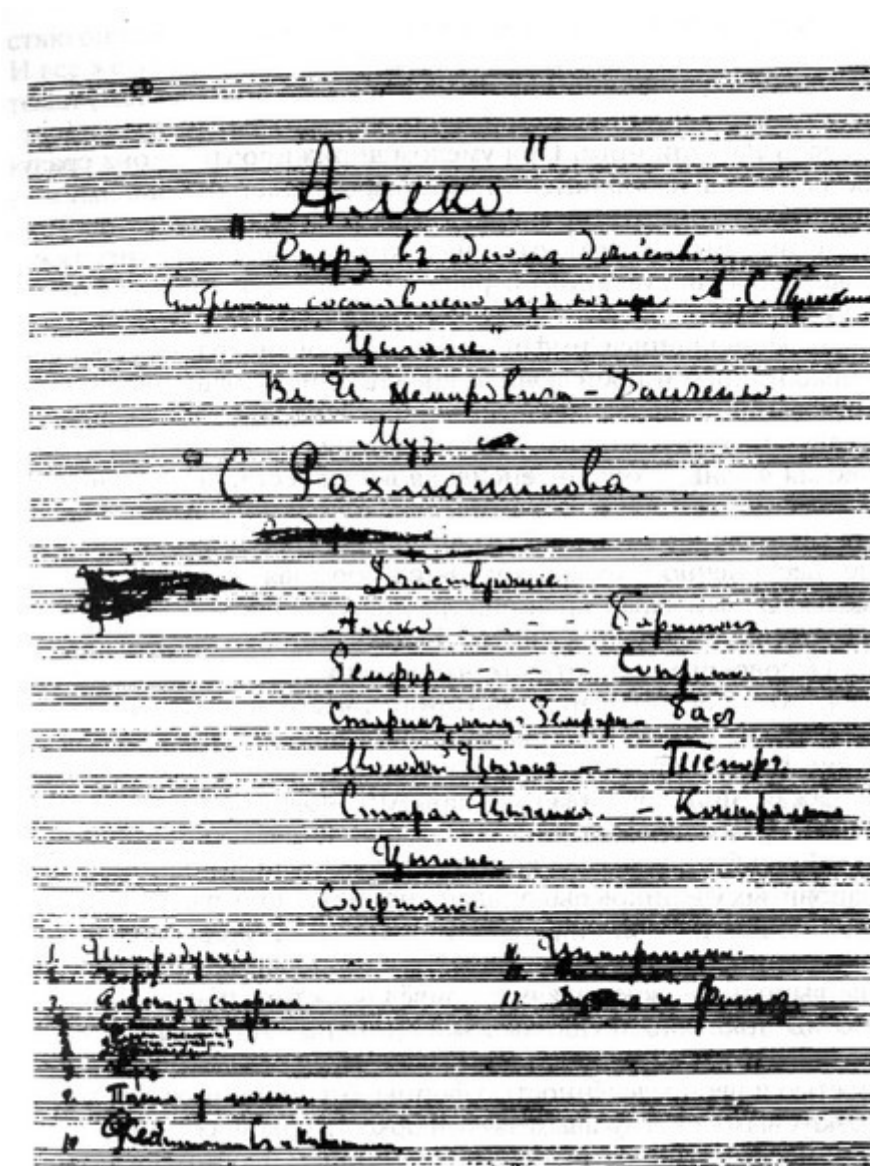 "Алеко."
Опера въ одномъ дѣйствіи
Либретто составлено изъ поэмы А. С. Пушкина
"Цыгане"
Вл. И. Немировича-Данченко.
Муз.
С. Рахманинова.
Дѣйствующіе
Алеко - - - Баритонъ
Земфира - - - Сопрано
Старикъ, отецъ Земфиры - Басъ
Молодой Цыганъ - Теноръ
Старая Цыганка. - Контральто
Цыгане.
Содержаніе
1. Интродукція
2. Хоръ
3. Разсказъ старика
Сцена и хоръ.
Хоръ
9. Пѣсня у люльки
10
11. Интермеццо.
12.
13. Дуэтъ и Финалъ